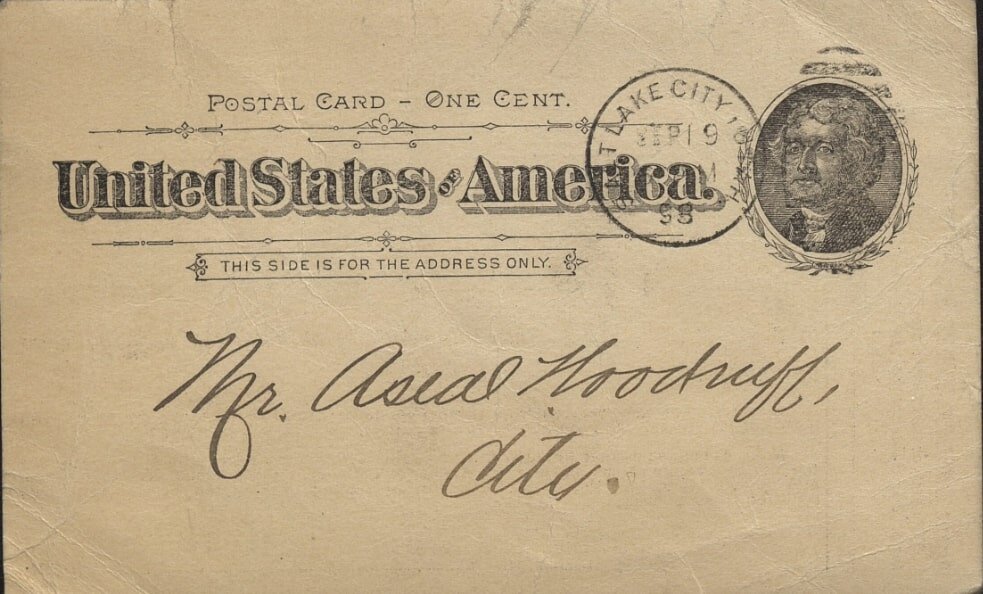 POSTAL CARD – ONE CENT.
United States OF America.
THIS SIDE IS FOR THE ADDRESS ONLY.
T LAKE CITY,
SEP 19
98
Mr. Aseal Woodruff,
City.